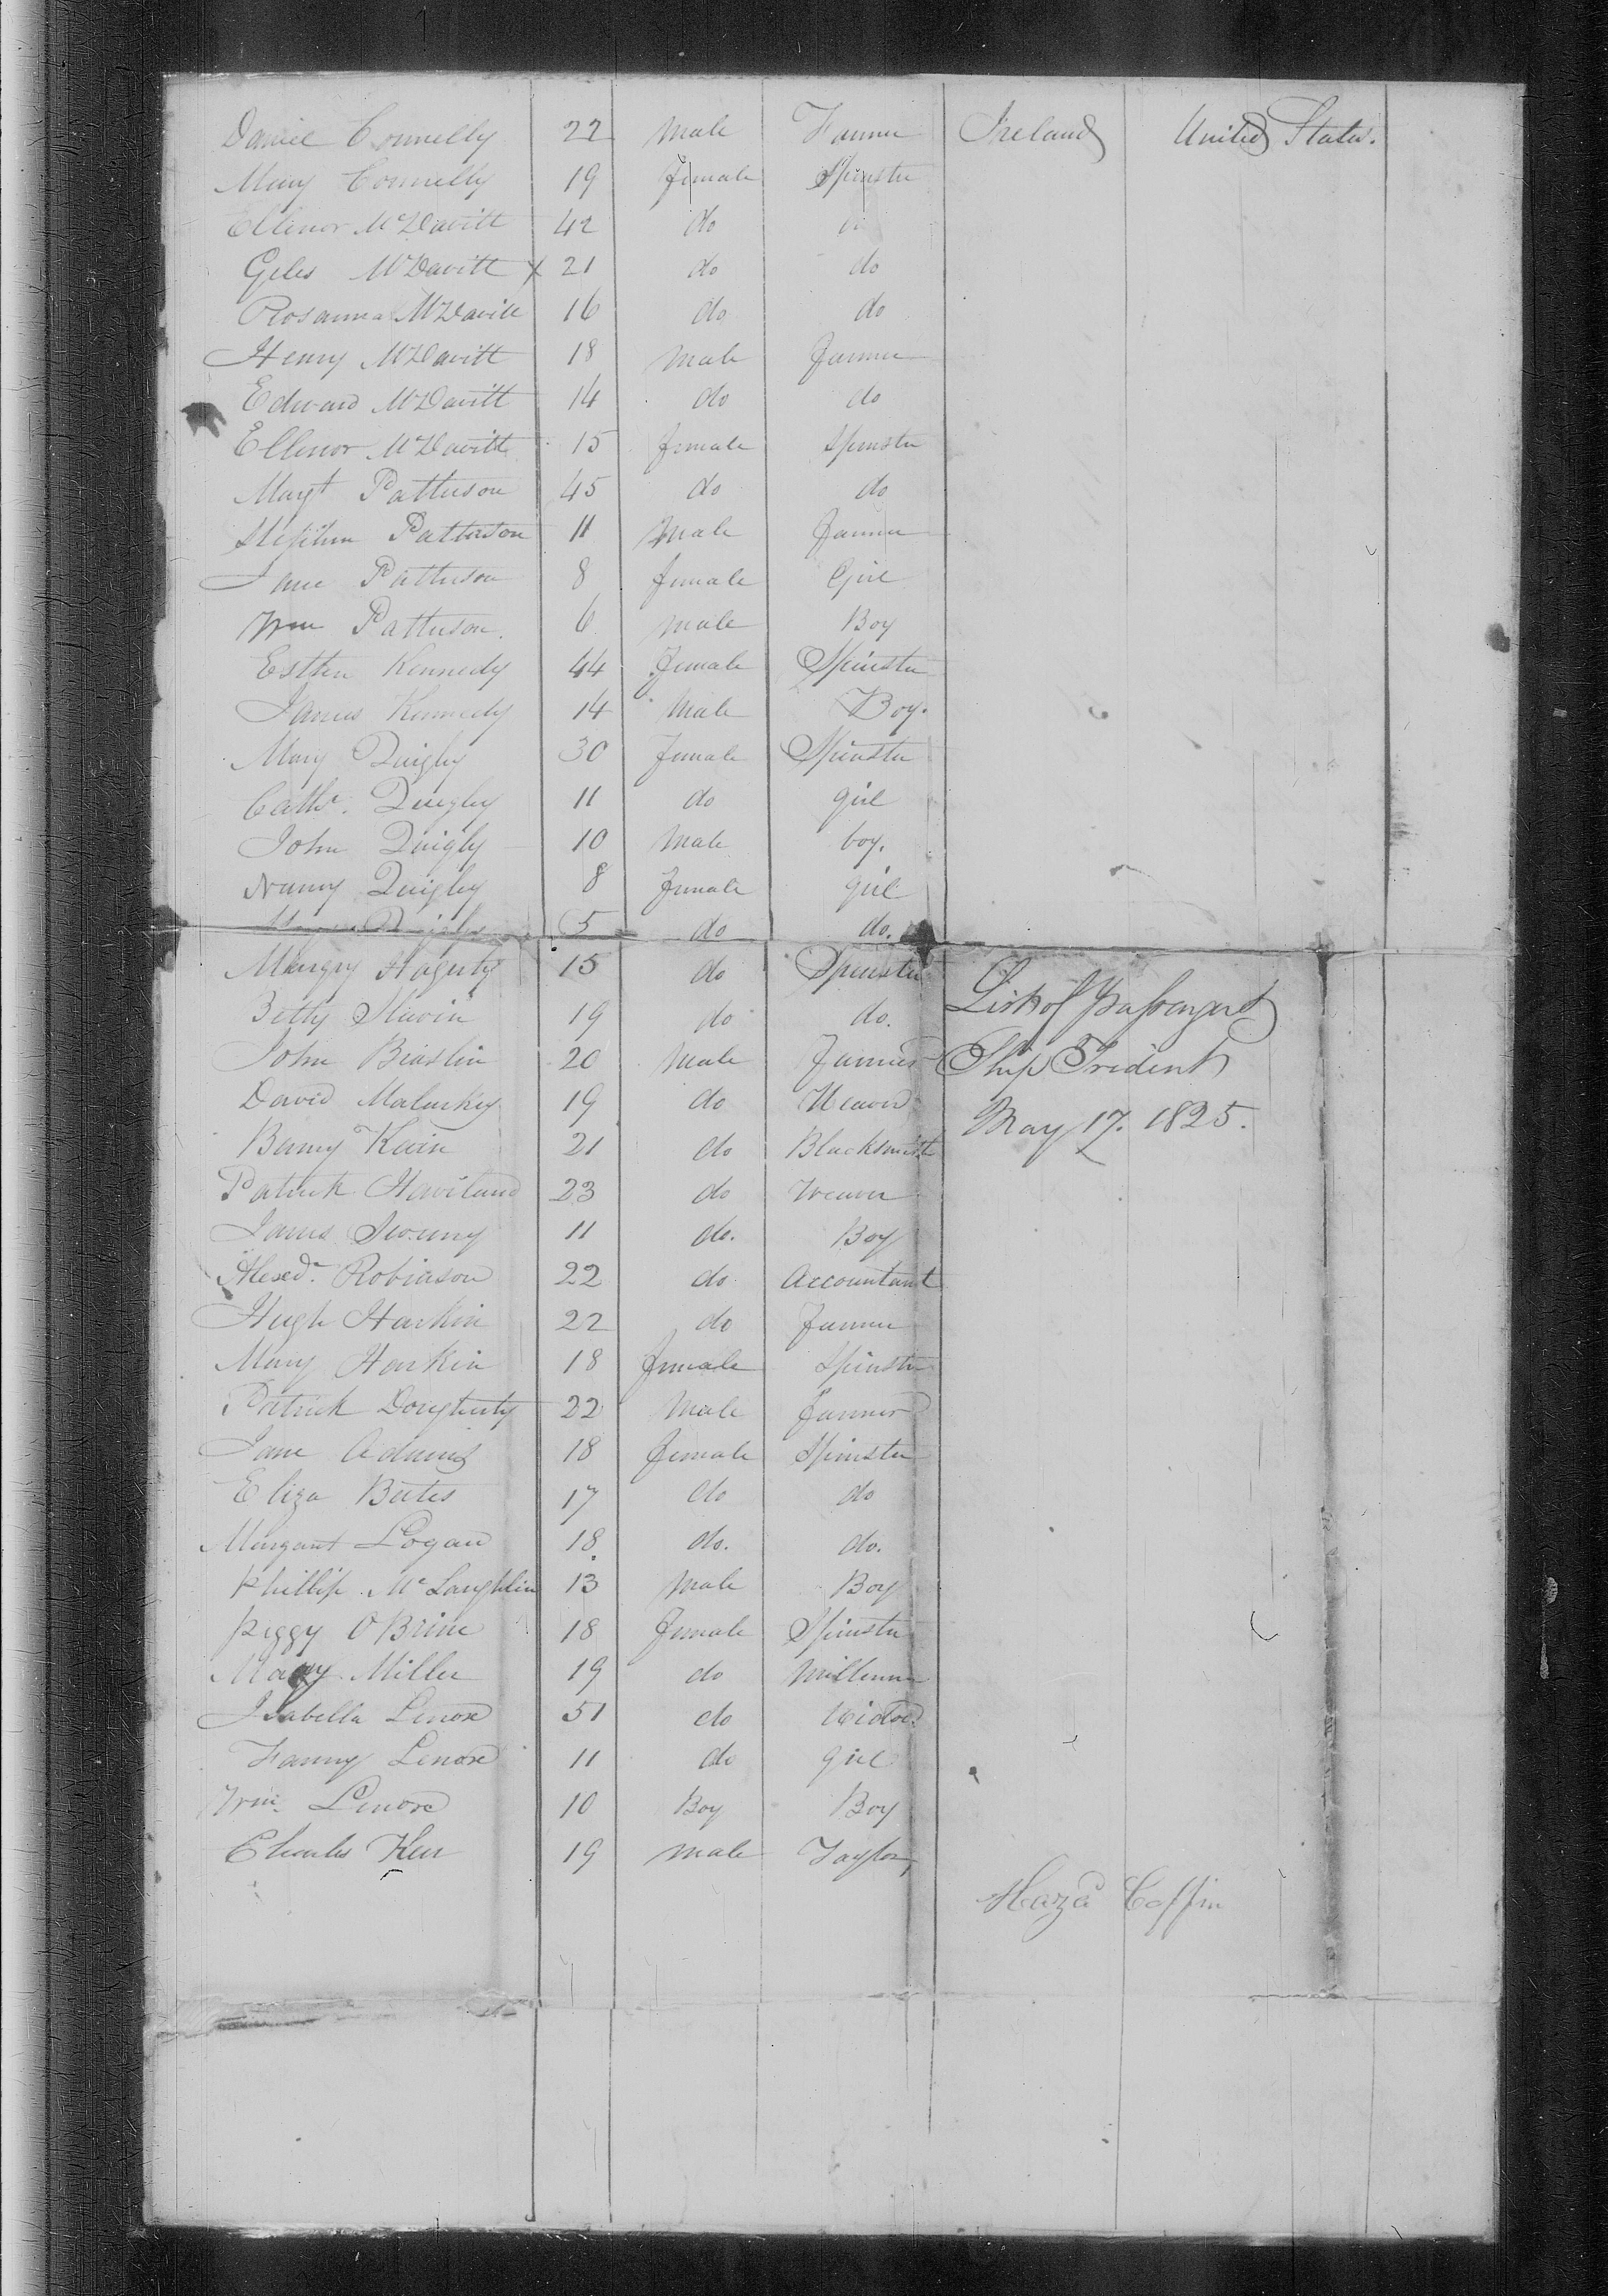 Daniel Connelly 22 Male Farmer Ireland United States.
Mary Connelly 19 female Spinster
Ellenor McDavitt 42 do
Giles McDavitt x 21 do do
Rosanna McDavitt 16 do do
Henry McDavitt 18 Male farmer
Edward McDavitt 14 do do
Ellenor McDavitt 15 female Spinster
Margt Patterson 45 do do
Stephen Patterson 11 Male farmer
Jane Patterson 8 female Girl
Wm Patterson. 6 male Boy
Esther Kennedy 44 female Spinster
James Kennedy 14 Male Boy.
Mary Quigly 30 female Spinster
Cathe. Quigley 11 do girl
John Quigly 10 Male boy.
Nancy Quigley 8 female girl
Quigly 5 do do.
Margry Hagerty 15 do Spinster
Betty Slavin 19 do do.
John Braslin 20 Male Farmer
David Malarkey 19 do Weaver
Barny Kain 21 do Blacksmith
Patrick Haviland 23 do Weaver
James Sweeny 11 do. Boy
Alexdr. Robinson 22 do Accountant
Hugh Harkin 22 do farmer
Mary Harkin 18 female Spinster
Patrick Dougherty 22 Male farmer
Jane Adams 18 female Spinster
Eliza Bates 17 do do
Margaret Logan 18. do. do.
Phillip McLaughlin 13 Male Boy
Peggy OBrine 18 female Spinster
Mary Miller 19 do Millener
Isabella Lenox 51 do Widow
Fanny Lenox 11 do girl
Wm. Lenox 10 Boy Boy
Charles Kerr 19 male Taylor
List of Passengers
Ship Trident
May 17. 1825.
Coffin